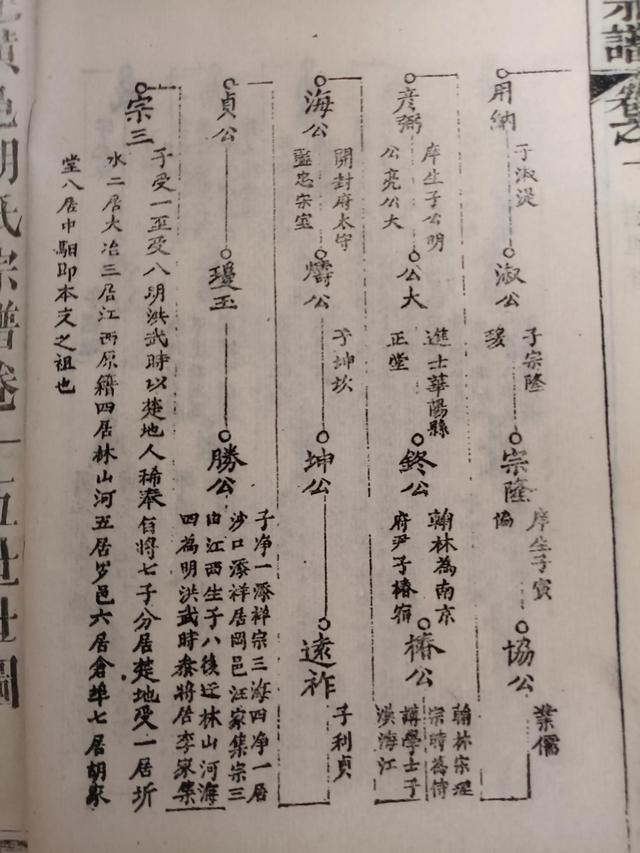 宗譜
卷之一
用納
子淑湜
淑公
子宗隆
瑗
宗隆
庠生子賓
協
協公
業儒
彦弼
庠生子公明
公亮公大
公大
進士華陽縣
正堂
終公
翰林為南京
府尹子椿
椿公
翰林宗理
宗時為侍
講學士子
洪海江
海公
開封府太守
監忠宗室
燽公
子坤坎
坤公
遠祚
子利貞
貞公
瓊玉
勝公
子净一添祥宗三海四净一居
沙口添祥居岡邑汪家集宗三
由江西生子八後迁林山河海
四為明洪武時叅將居李家集
宗三
子受一至受八明洪武時以楚地人稀奉旨將七子分居楚地受一居圻
水二居大冶三居江西原籍四居林山河五居罗邑六居倉埠七居胡家
堂八居中馹即本文之祖也
邑胡氏宗譜卷一五世世圖